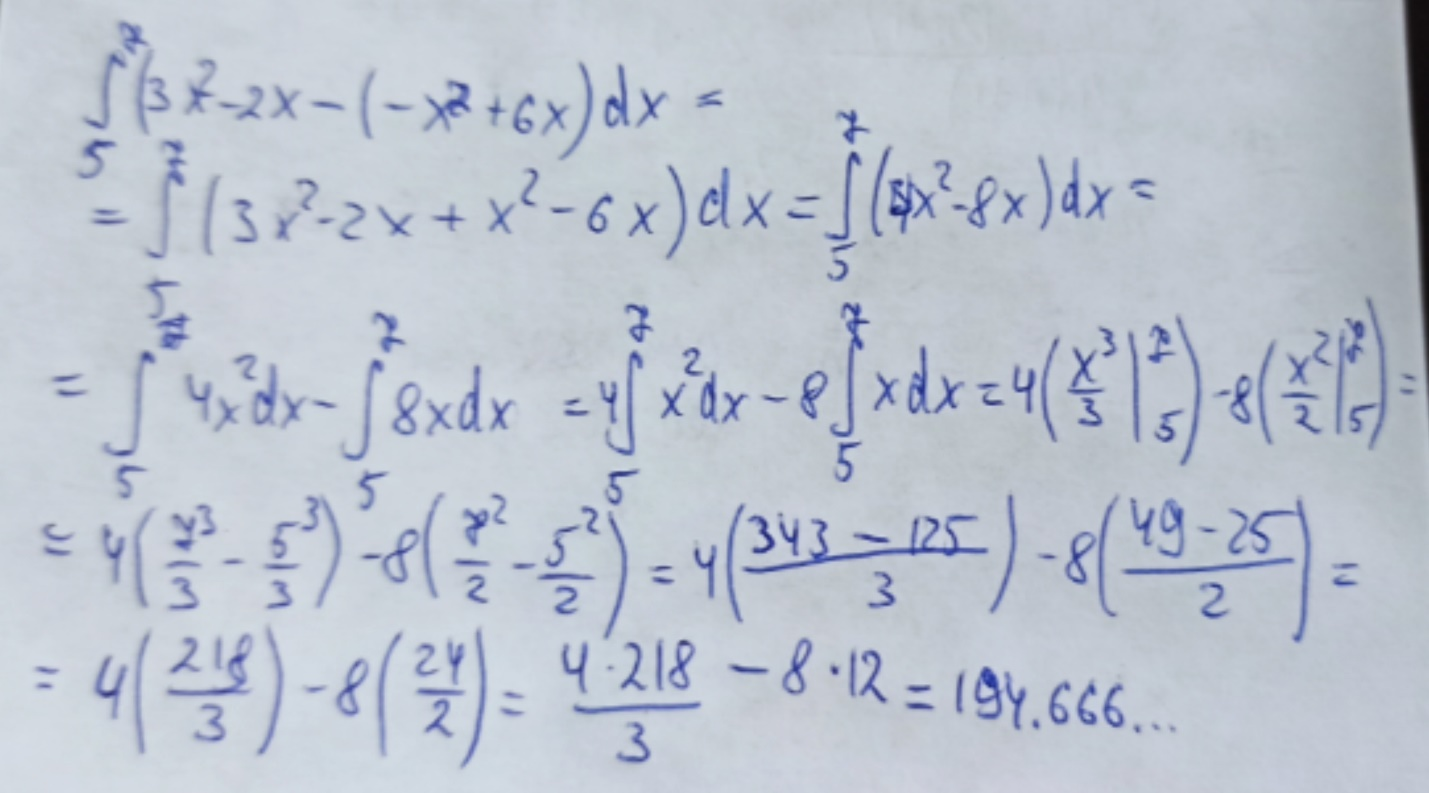 ∫₅⁷(3x²-2x-(-x²+6x)dx =
= ∫₅⁷(3x²-2x+x²-6x)dx = ∫₅⁷(4x²-8x)dx =
= ∫₅⁷ 4x²dx - ∫₅⁷ 8xdx = 4∫₅⁷ x²dx - 8∫₅⁷ xdx = 4(x³/3 |₅⁷) - 8(x²/2 |₅⁷) =
= 4(7³/3 - 5³/3) - 8(7²/2 - 5²/2) = 4((343-125)/3) - 8((49-25)/2) =
= 4(218/3) - 8(24/2) = (4·218)/3 - 8·12 = 194.666...